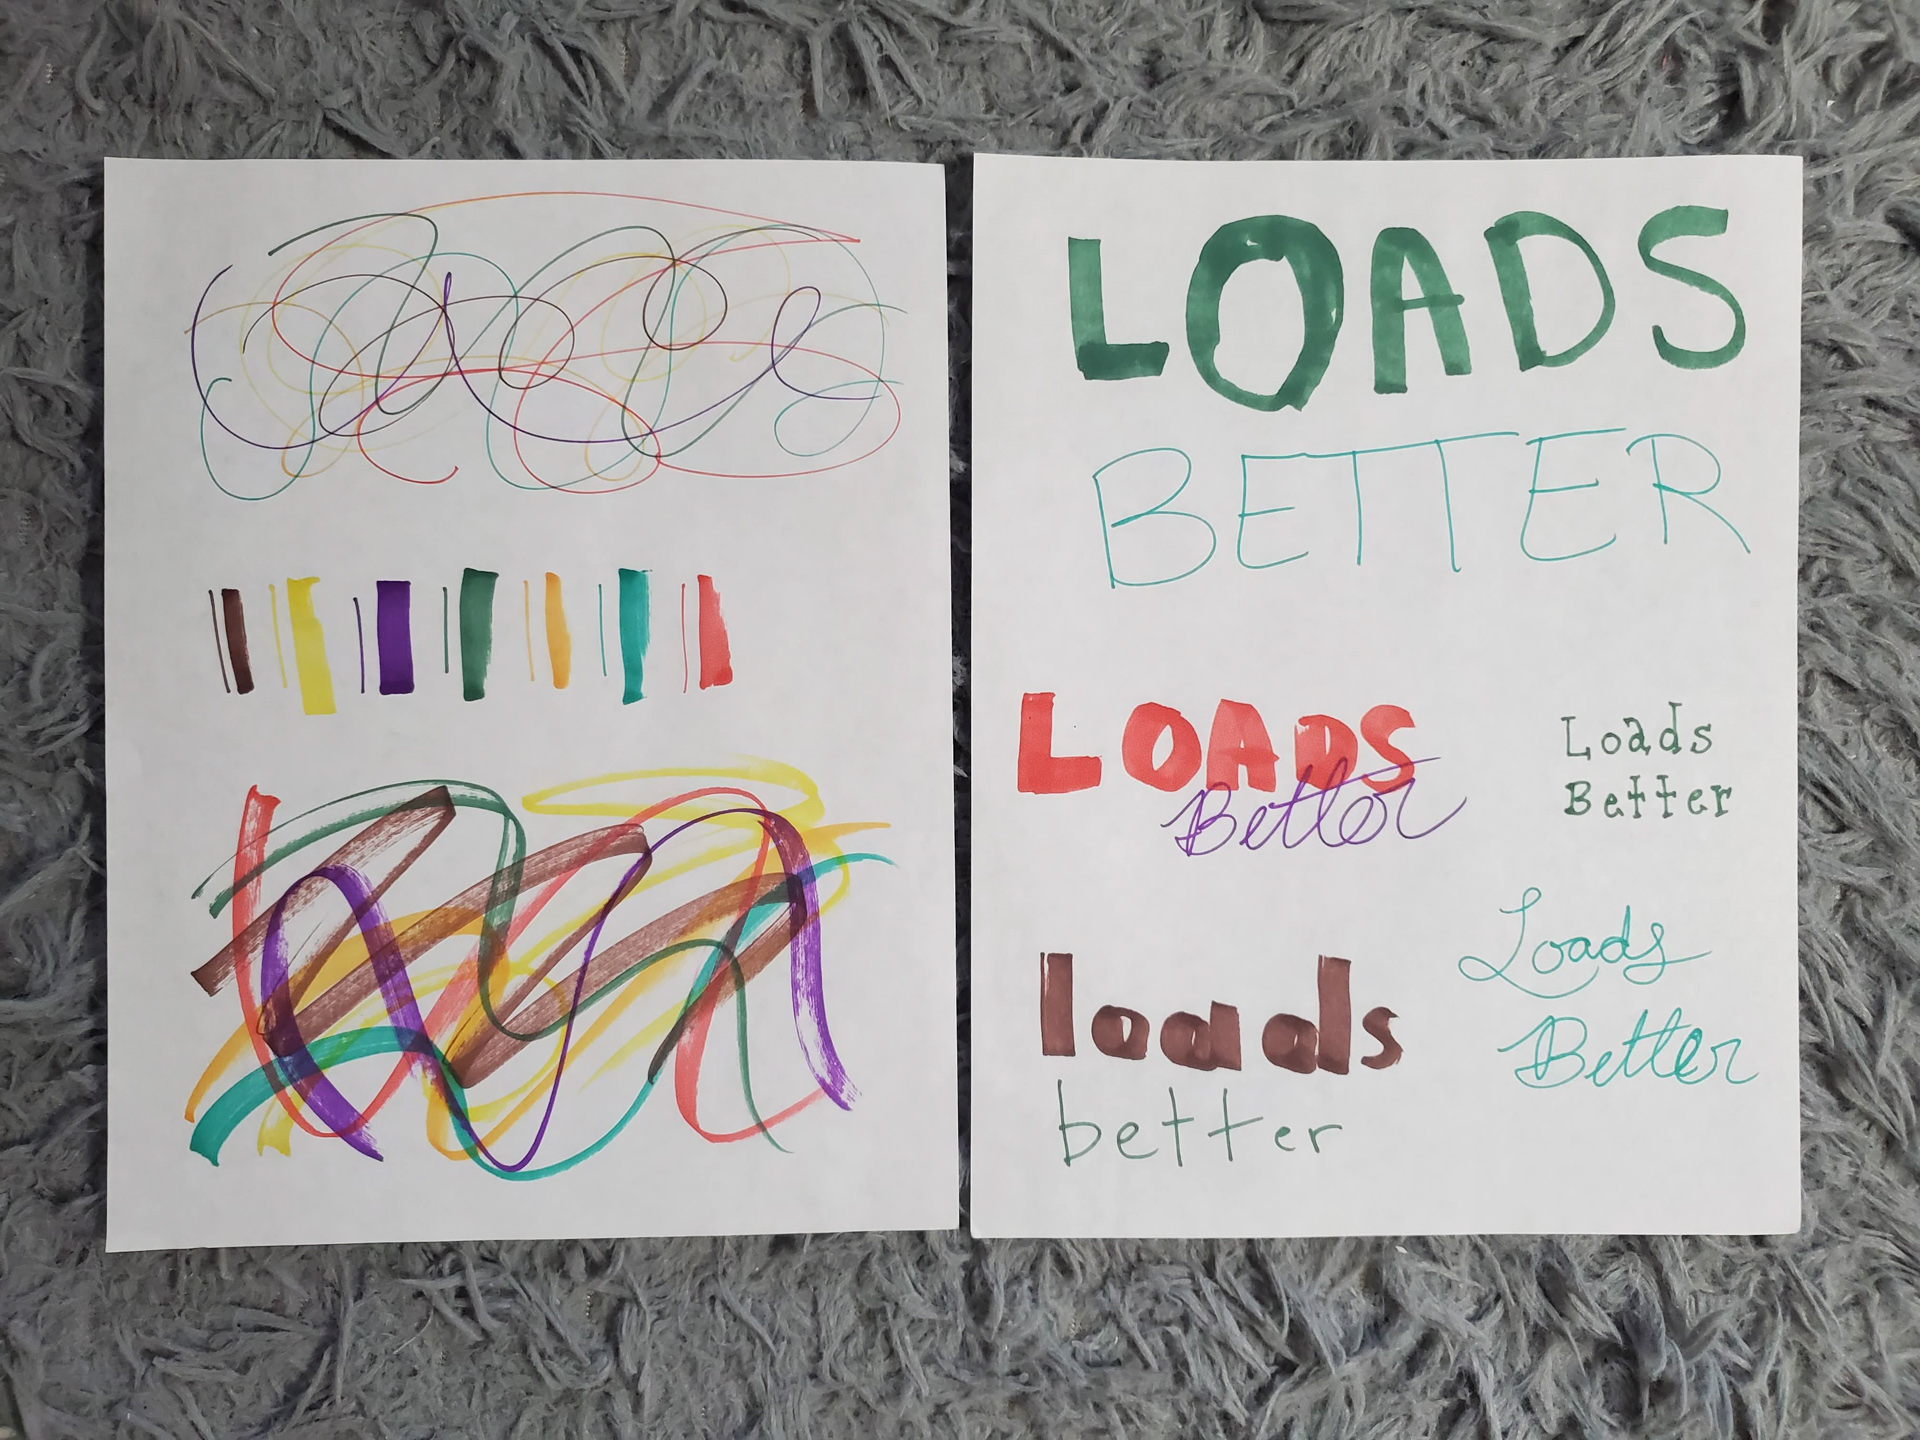 LOADS
BETTER
LOADS
Better
Loads
Better
loads
better
Loads
Better